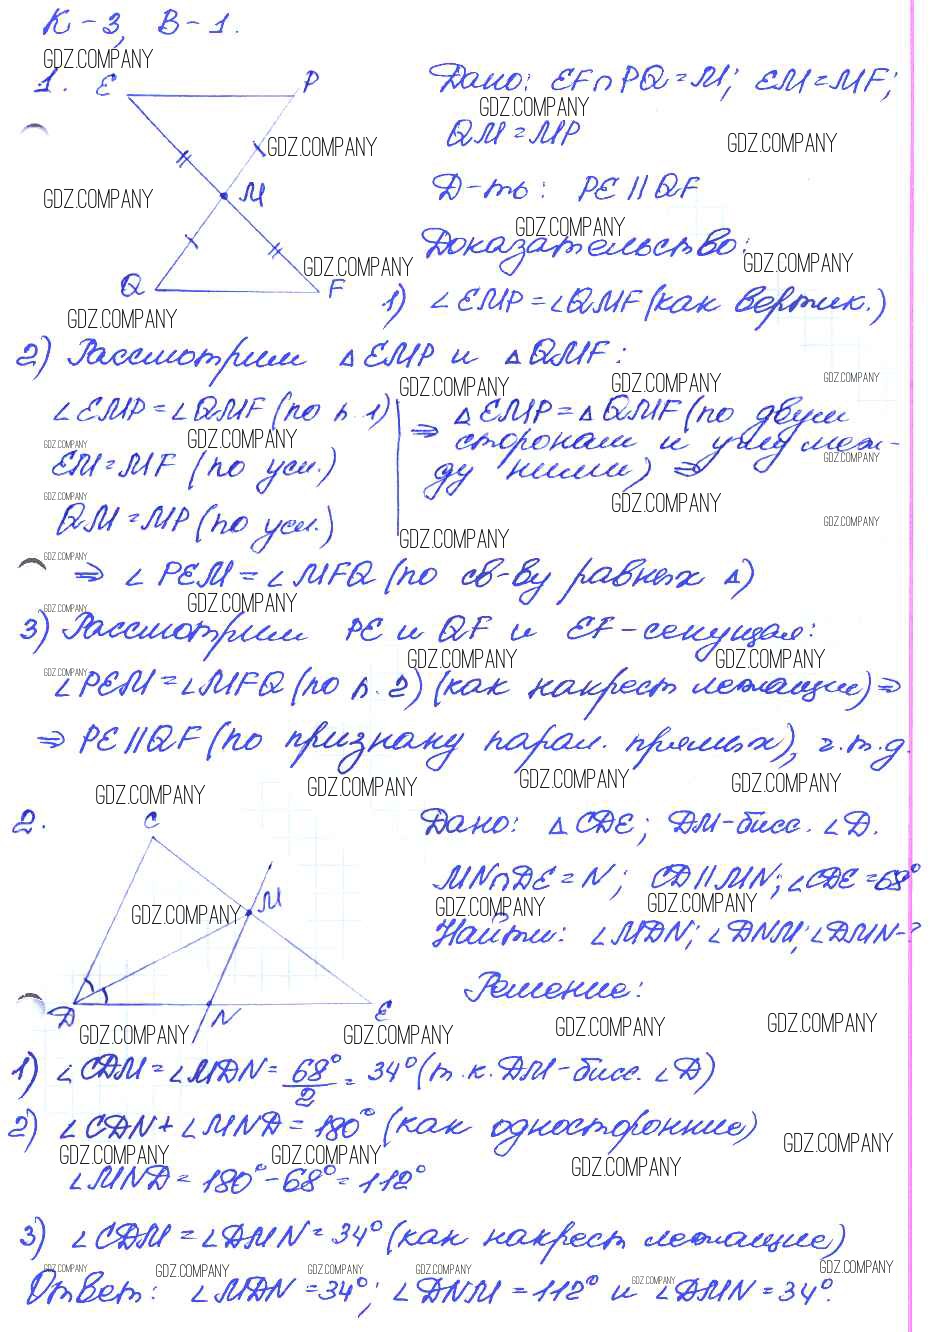 К-3, В-1.
1.
E P
M
Q F
Дано: EF∩PQ=M; EM=MF;
QM=MP
Д-ть: PE || QF
Доказательство:
1) ∠EMP=∠QMF (как вертик.)
2) Рассмотрим △EMP и △QMF:
∠EMP=∠QMF (по п.1)
EM=MF (по усл.)
QM=MP (по усл.)
⇒ △EMP=△QMF (по двум
сторонам и углу меж-
ду ними) ⇒
⇒ ∠PEM=∠MFQ (по св-ву равных △)
3) Рассмотрим PE и QF и EF-секущая:
∠PEM=∠MFQ (по п.2) (как накрест лежащие) ⇒
⇒ PE || QF (по признаку парал. прямых), ч.т.д.
2.
C
M
D N E
Дано: △CDE; DM-бисс. ∠D.
MN∩DE=N; CD || MN; ∠CDE=68°
Найти: ∠MDN; ∠DNM; ∠DMN-?
Решение:
1) ∠CDM=∠MDN=68°/2=34° (т.к. DM-бисс. ∠D)
2) ∠CDN+∠MND=180° (как односторонние)
∠MND=180°-68°=112°
3) ∠CDM=∠DMN=34° (как накрест лежащие)
Ответ: ∠MDN=34°; ∠DNM=112° и ∠DMN=34°.
GDZ.COMPANY